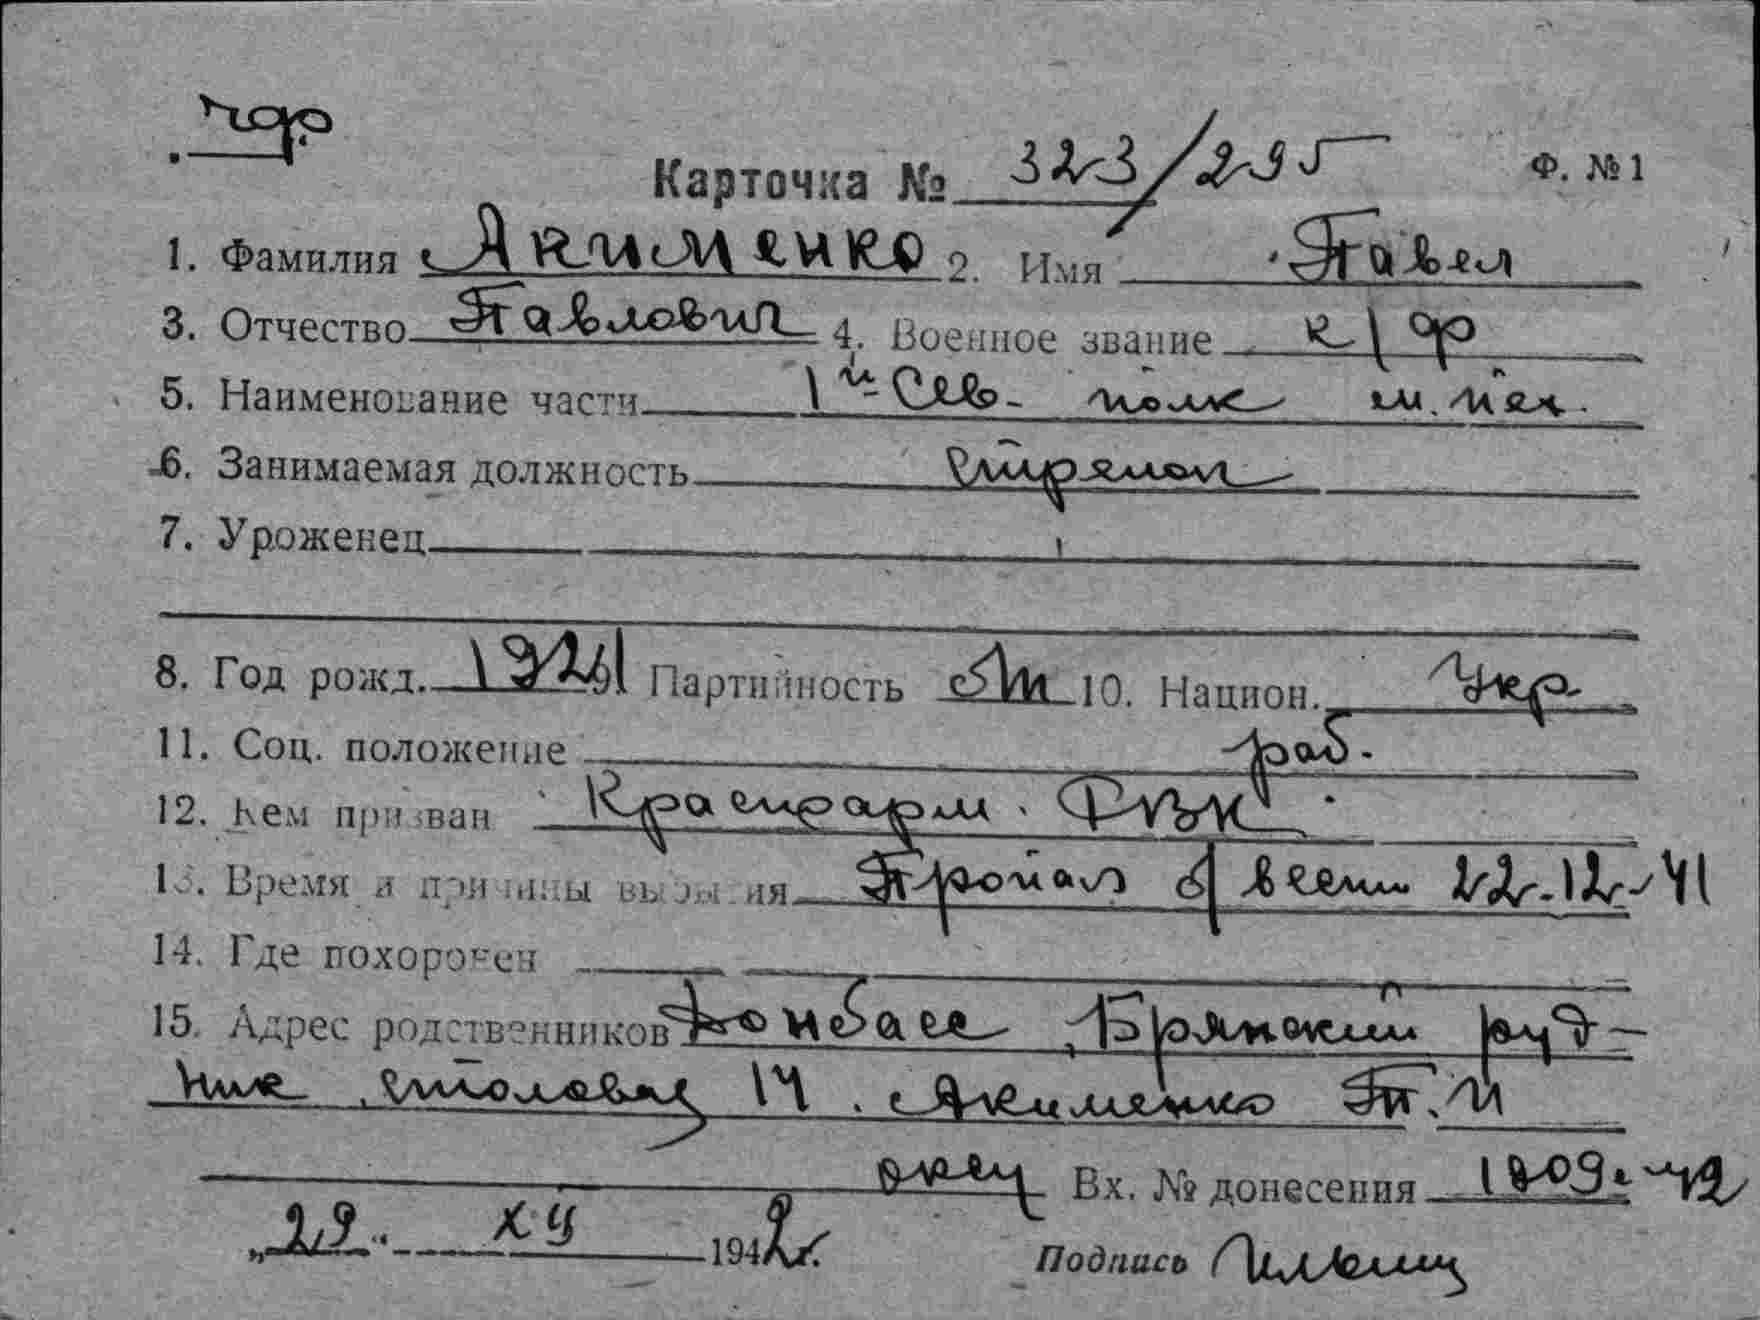 Карточка № 323/295 Ф. №1
1. Фамилия Акименко 2. Имя Павел
3. Отчество Павлович 4. Военное звание к/ф
5. Наименование части 1й Сев. полк м. пех.
6. Занимаемая должность стрелок
7. Уроженец
8. Год рожд. 1921 Партийность 10. Национ. Укр.
11. Соц. положение раб.
12. Кем призван РВК
13. Время и причины выбытия Пропал б/вести 22.12.41
14. Где похоронен
15. Адрес родственников Донбасс, Брянский руд-
ник, столовая 14. Акименко П. И
Вх. № донесения 1809с 42
„29“ XII 1942г. Подпись